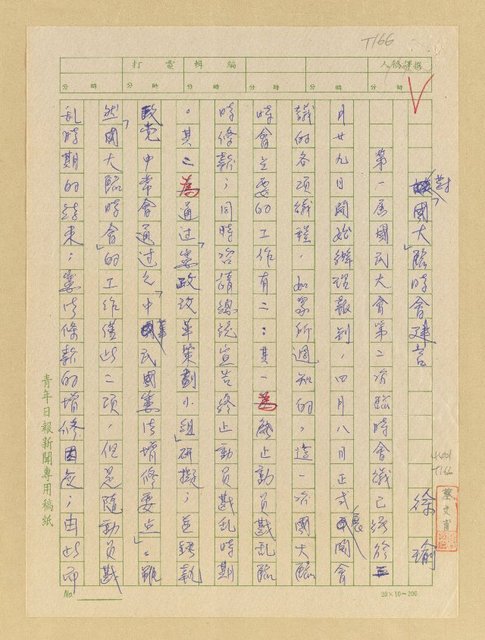 T166
打電 輯編 人修譯撰
分 時 分 時 分 時 分 時
對「國大」臨時會建言
徐瑜
第一屆國民大會第二次臨時會議已經於三
月廿九日開始辦理報到,四月八日正式展開會
議的各項議程。如眾所週知的,這一次國大臨
時會主要的工作有二:其一為廢止動員戡亂臨
時條款;同時咨請總統宣告終止動員戡亂時期
。其二為通过「憲政改革策劃小組」研擬;並經執
政党中常會通过之「中華民國憲法增修要点」。雖
然「國大臨時會」的工作僅此二項,但是隨動員戡
亂時期的結束;憲法條款的增修
;由此而
青年日報新聞專用稿紙
T166
No
20×10=200